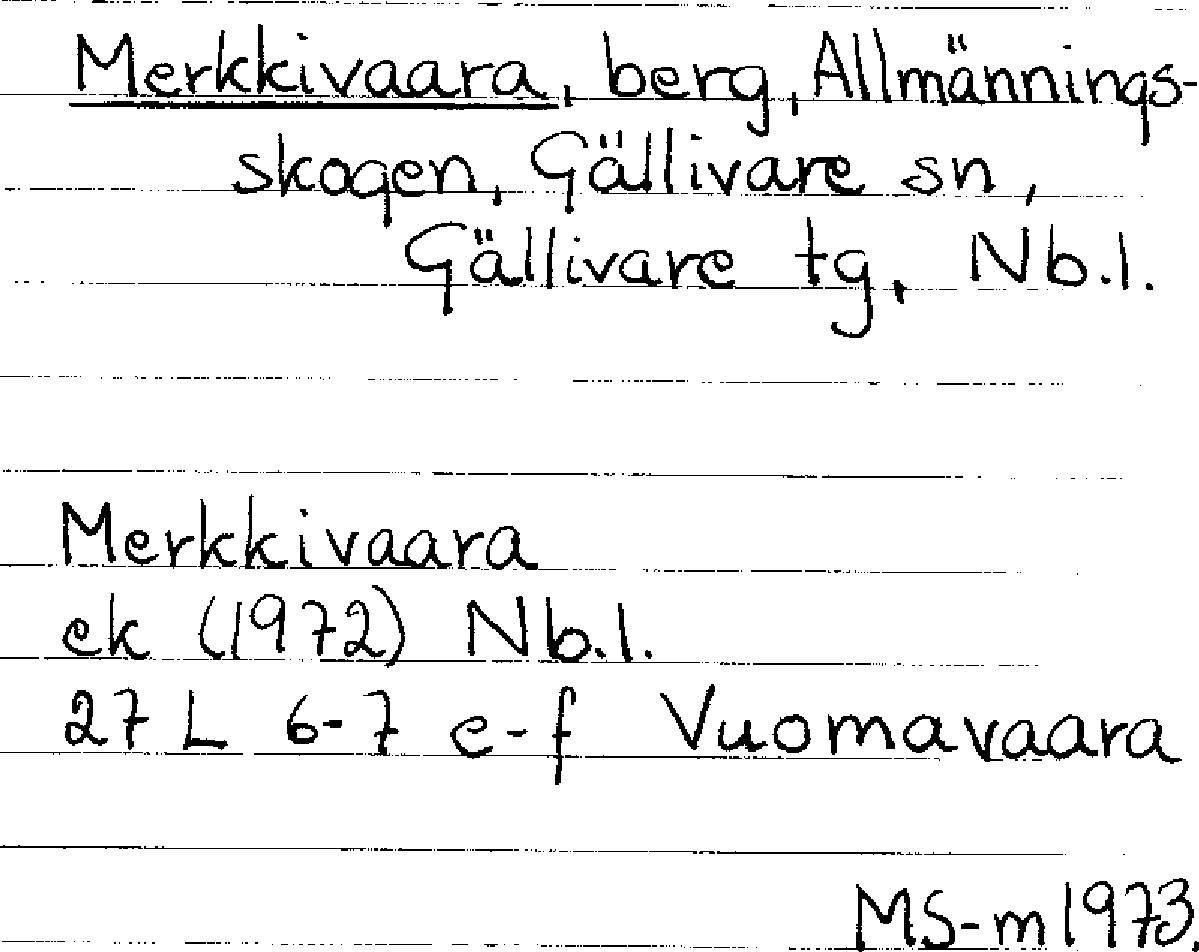 Merkkivaara, berg, Allmännings-
skogen, Gällivare sn,
Gällivare tg, Nb.l.
Merkkivaara
ek (1972) Nb.l.
27 L 6-7 e-f Vuomavaara
MS-m 1973.